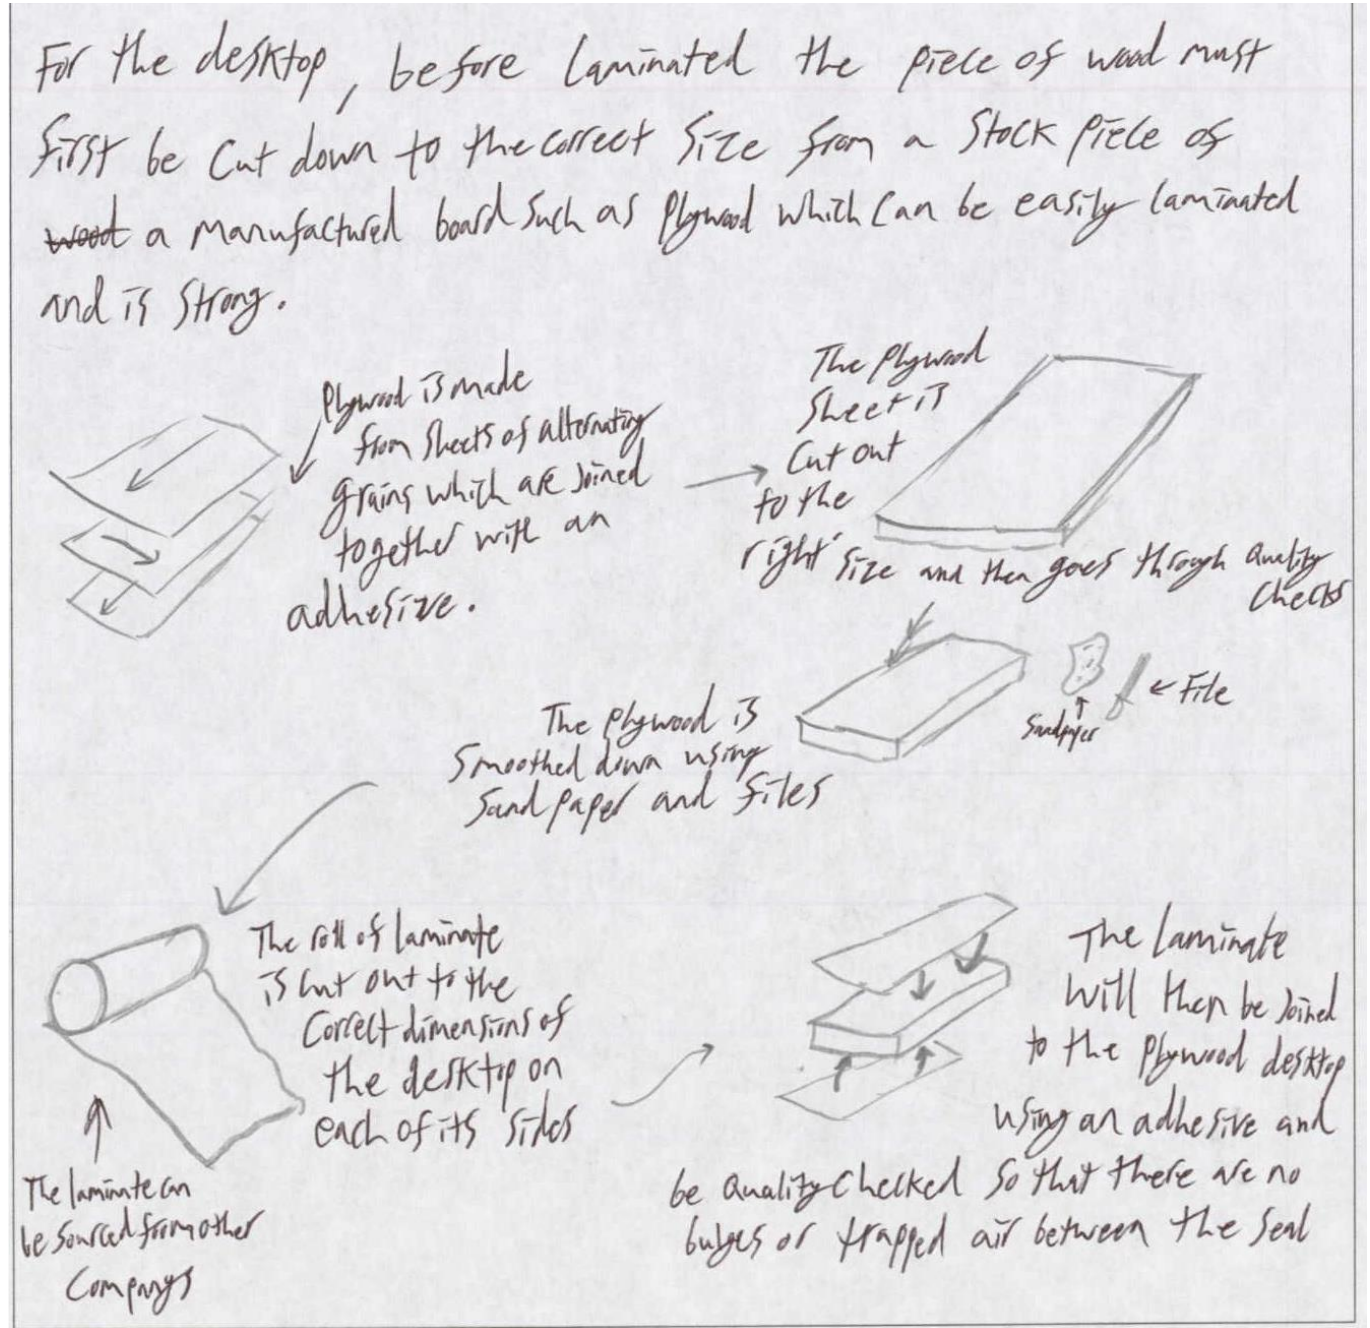 For the desktop, before laminated the piece of wood must
first be cut down to the correct size from a stock piece of
wood a manufactured board such as plywood which can be easily laminated
and is strong.
Plywood is made
from sheets of alternating
grains which are joined
together with an
adhesive.
The plywood
sheet is
cut out
to the
right size and then goes through quality
checks
File
Sandpaper
The plywood is
smoothed down using
sand paper and files
The roll of laminate
is cut out to the
correct dimensions of
the desktop on
each of its sides
The laminate can
be sourced from other
companys
The laminate
will then be joined
to the plywood desktop
using an adhesive and
be quality checked so that there are no
bulges or trapped air between the seal